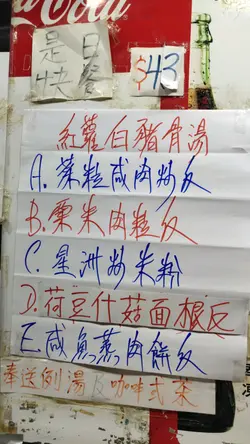 Coca-Cola
是日
快餐
$43
紅蘿白豬骨湯
A. 菜粒咸肉炒反
B. 粟米肉粒反
C. 星洲炒米粉
D. 荷豆什菇面根反
E. 咸魚蒸肉餅反
奉送例湯及咖啡或茶